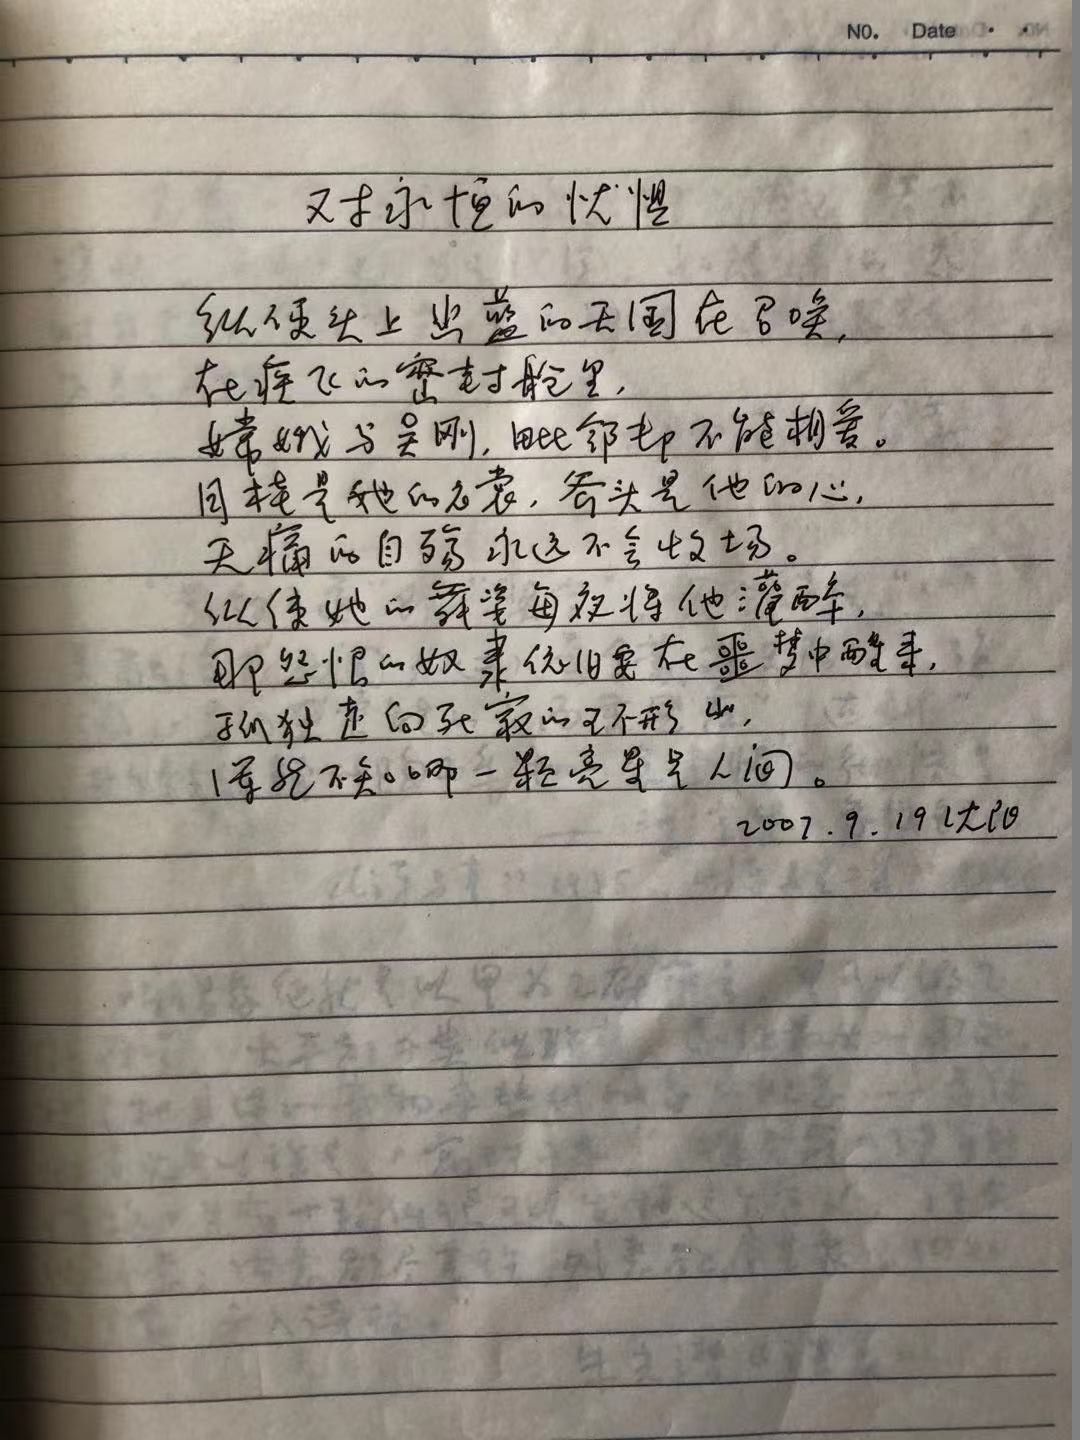 NO. Date
对永恒的忧惧
纵使头上幽蓝的天国在召唤,
在疾飞的密封舱里,
嫦娥与吴刚,毗邻却不能相爱。
月桂是她的衣裳,斧头是他的心,
无痛的自殇永远不会收场。
纵使她的舞姿每夜将他灌醉,
那怨恨的奴隶依旧要在噩梦中醒来,
孤独走向死寂的环形山,
浑然不知哪一颗亮星是人间。
2007.9.19 沈阳